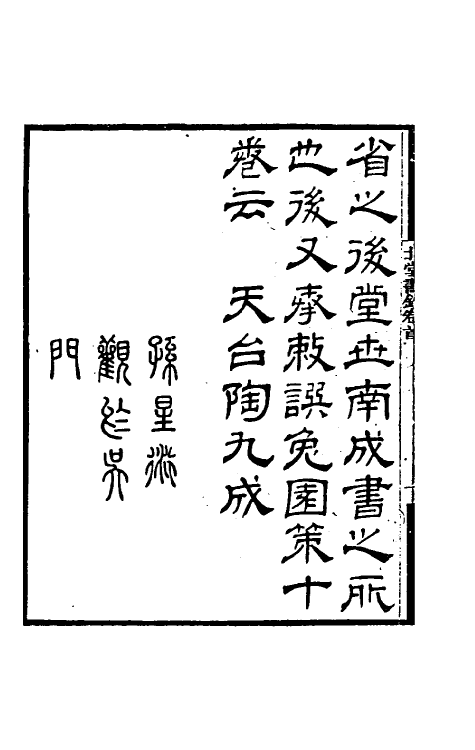 省之後堂世南成書之所
也後又奉敕譔兔園策十
卷云　天台陶九成
孫星衍
觀於吳
門
北堂書鈔卷首